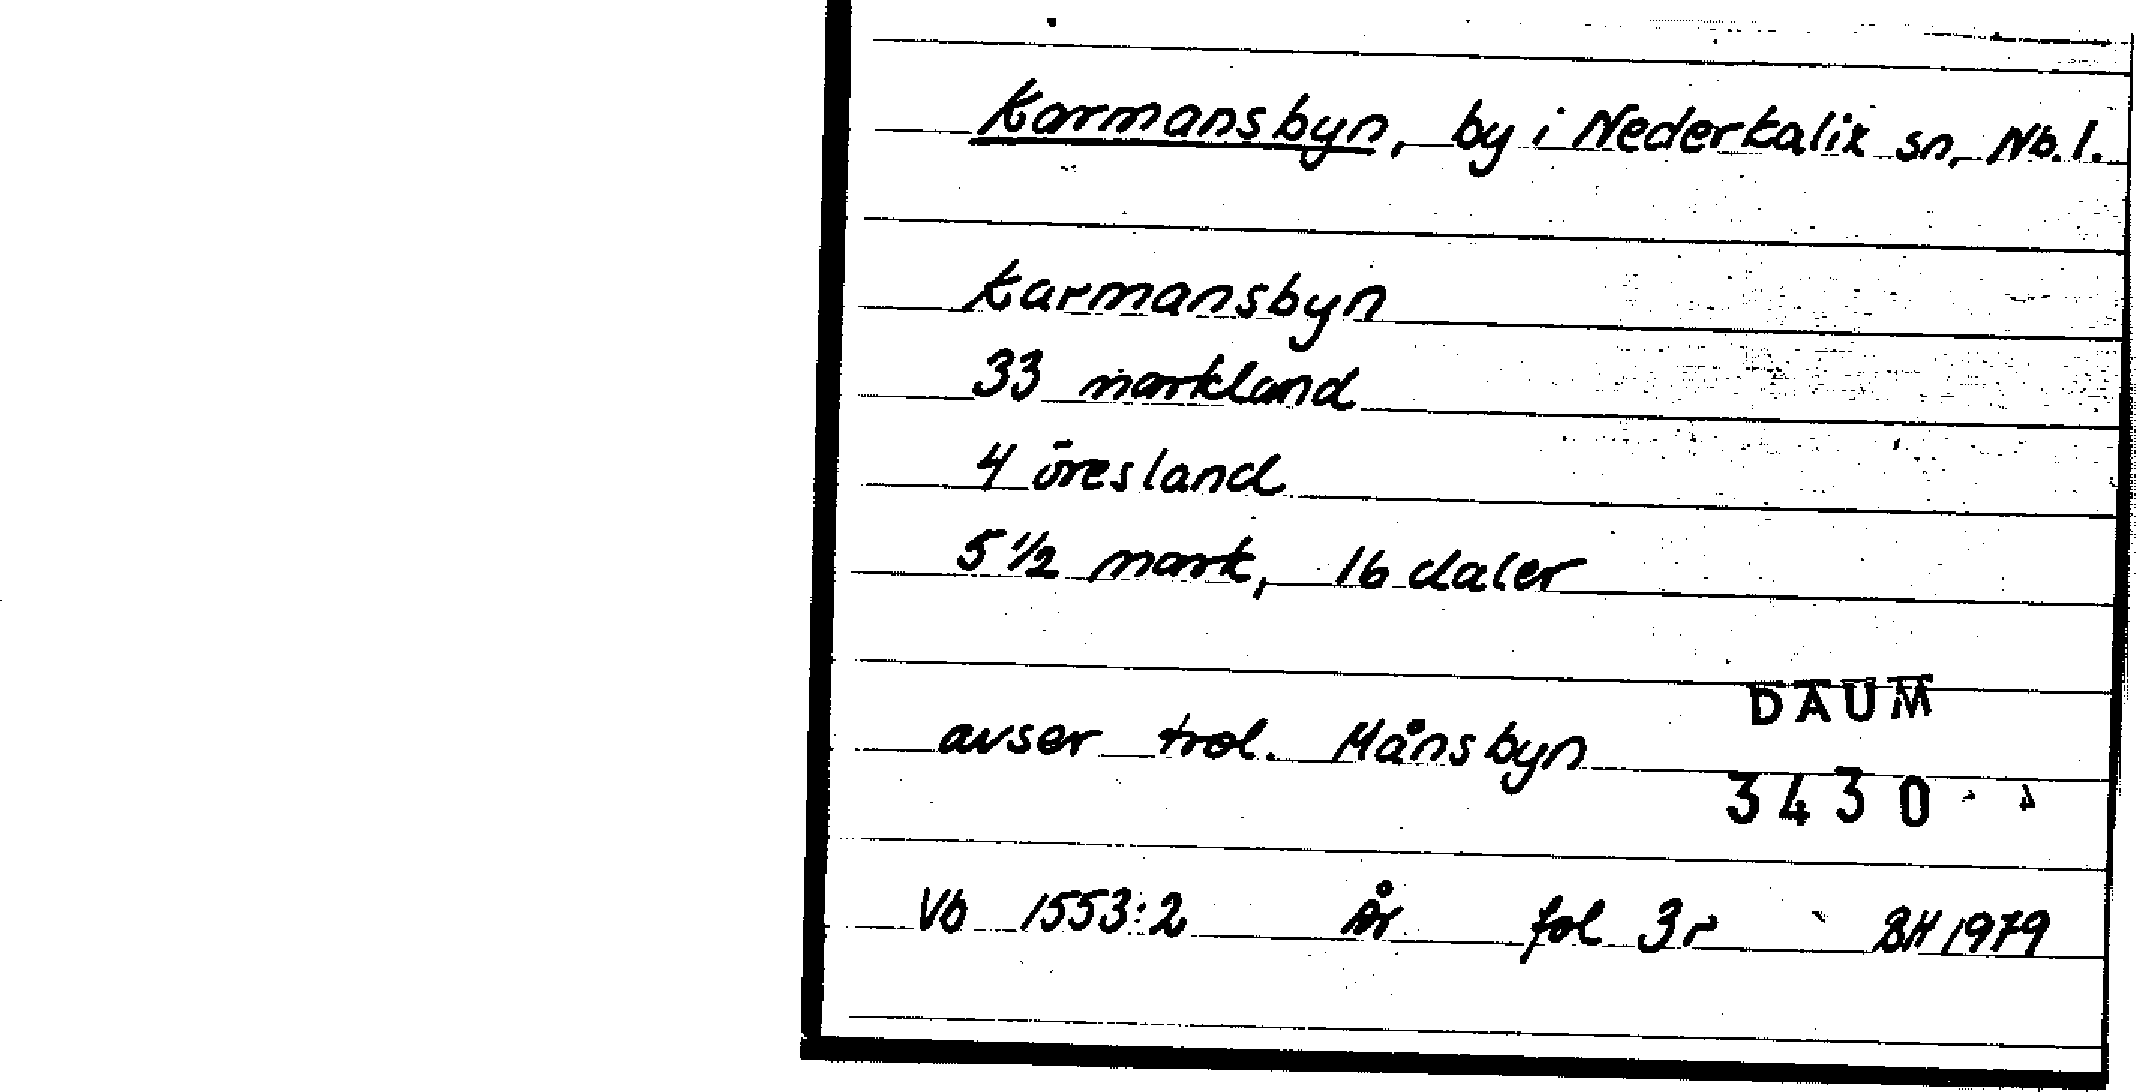 Karmansbyn, by i Nederkalix sn, Nb. l.
Karmansbyn
33 markland
4 öresland
5 1/2 mark, 16 daler
DAUM
avser trol. Månsbyn
3430
Vb 1553:2 År fol 3r BH 1979